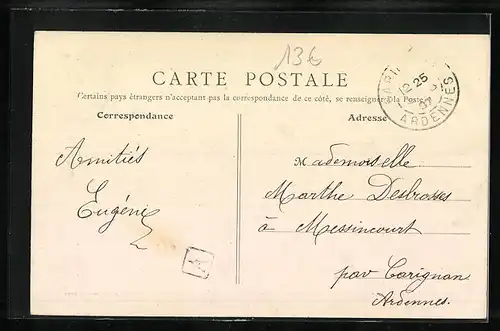 13€
CARTE POSTALE
Certains pays étrangers n'acceptant pas la correspondance de ce côté, se renseigner à la Poste
Correspondance
Adresse
12-25
ARDENNES
Amitiés
Eugénie
Mademoiselle
Marthe Desbrosses
à Messincourt
par Carignan
Ardennes.